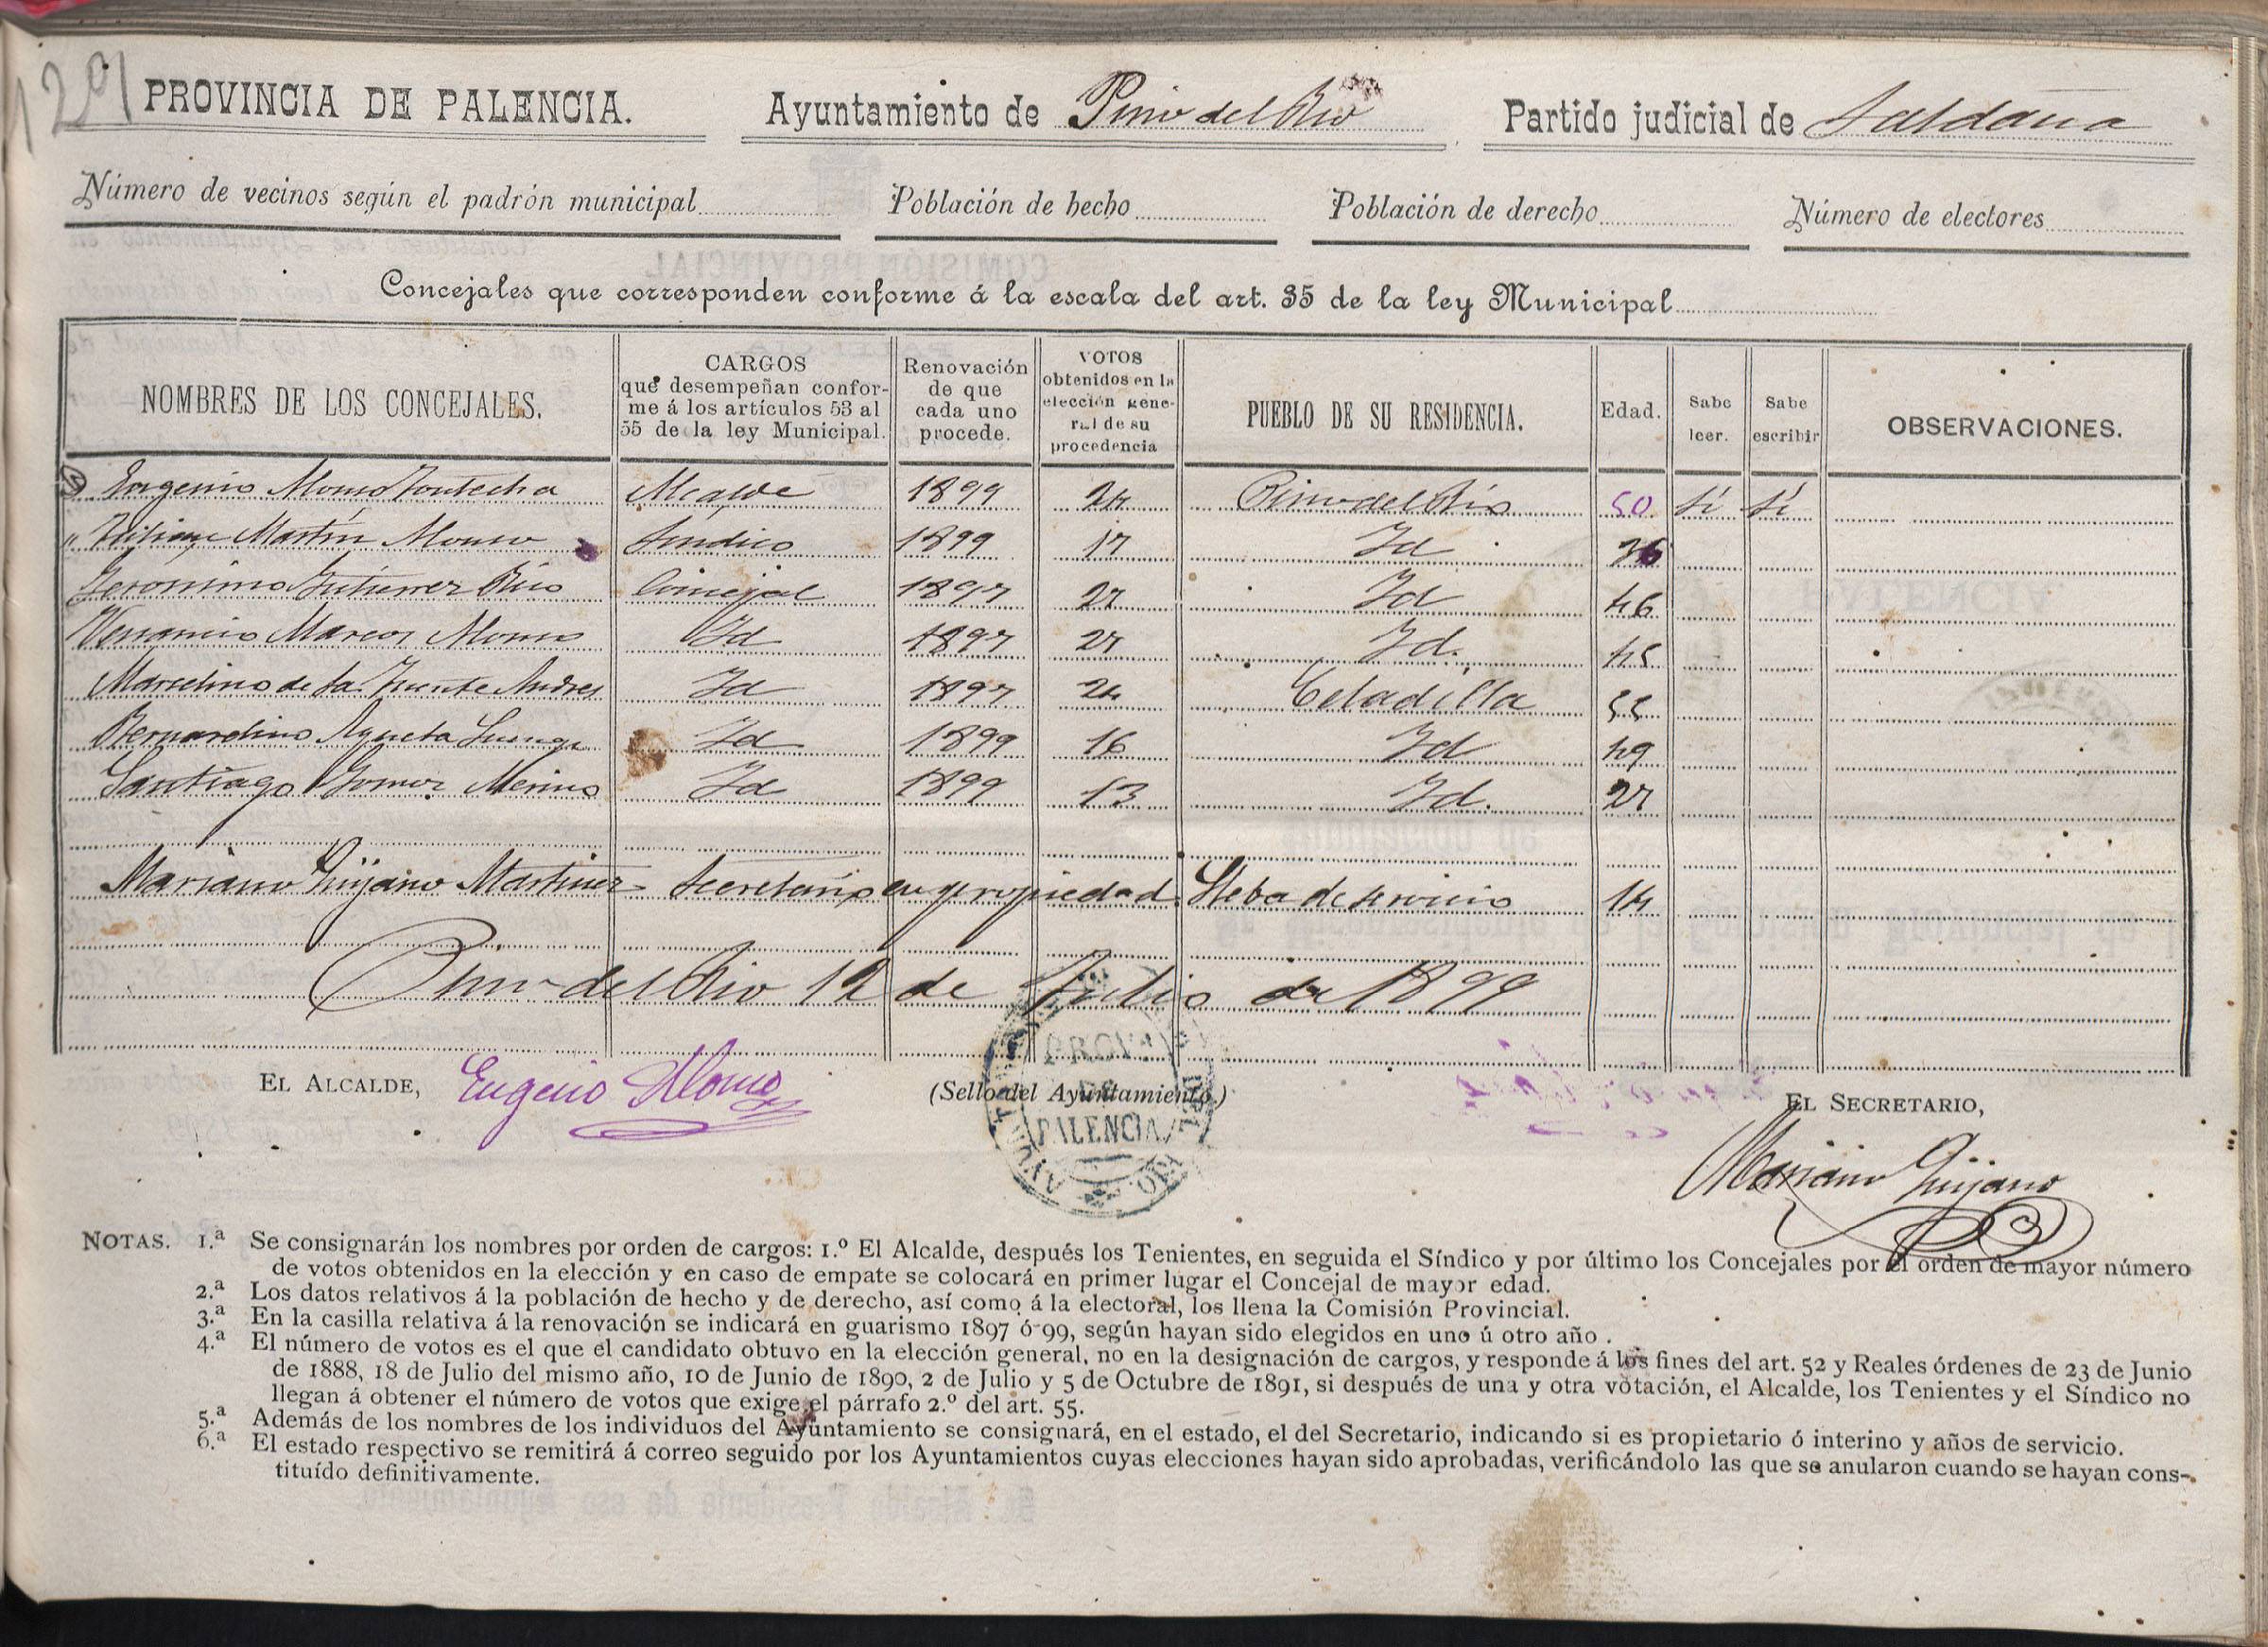 1291
PROVINCIA DE PALENCIA. Ayuntamiento de Pino del Rio Partido judicial de Saldaña
Número de vecinos según el padrón municipal Población de hecho Población de derecho Número de electores
Concejales que corresponden conforme á la escala del art. 35 de la ley Municipal
NOMBRES DE LOS CONCEJALES. CARGOS que desempeñan conforme á los artículos 53 al 55 de la ley Municipal. Renovación de que cada uno procede. VOTOS obtenidos en la elección general de su procedencia PUEBLO DE SU RESIDENCIA. Edad. Sabe leer. Sabe escribir OBSERVACIONES.
Eugenio Alonso Fontecha Alcalde 1899 24 Pino del Rio 50 Sí Sí
Martín Alonso Síndico 1899 17 Id 36
Jeronimo Gutierrez Rio Concejal 1897 27 Id 46
Venancio Marcos Alonso Id 1897 27 Id. 45
Marcelino de la Fuente Andres Id 1897 24 Celadilla 55
Bernardino Luengo Id 1899 16 Id 49
Santiago Gomez Merino Id 1899 13 Id. 27
Mariano Quijano Martinez Secretario en propiedad. Lleba de servicio 14
Pino del Rio 12 de Julio de 1899
EL ALCALDE, Eugenio Alonso (Sello del Ayuntamiento.) EL SECRETARIO,
PROVA DE PALENCIA
Mariano Quijano
NOTAS. 1.ª Se consignarán los nombres por orden de cargos: 1.º El Alcalde, después los Tenientes, en seguida el Síndico y por último los Concejales por el orden de mayor número
de votos obtenidos en la elección y en caso de empate se colocará en primer lugar el Concejal de mayor edad.
2.ª Los datos relativos á la población de hecho y de derecho, así como á la electoral, los llena la Comisión Provincial.
3.ª En la casilla relativa á la renovación se indicará en guarismo 1897 ó 99, según hayan sido elegidos en uno ú otro año .
4.ª El número de votos es el que el candidato obtuvo en la elección general, no en la designación de cargos, y responde á los fines del art. 52 y Reales órdenes de 23 de Junio
de 1888, 18 de Julio del mismo año, 10 de Junio de 1890, 2 de Julio y 5 de Octubre de 1891, si después de una y otra votación, el Alcalde, los Tenientes y el Síndico no
llegan á obtener el número de votos que exige el párrafo 2.º del art. 55.
5.ª Además de los nombres de los individuos del Ayuntamiento se consignará, en el estado, el del Secretario, indicando si es propietario ó interino y años de servicio.
6.ª El estado respectivo se remitirá á correo seguido por los Ayuntamientos cuyas elecciones hayan sido aprobadas, verificándolo las que se anularon cuando se hayan cons-
tituído definitivamente.